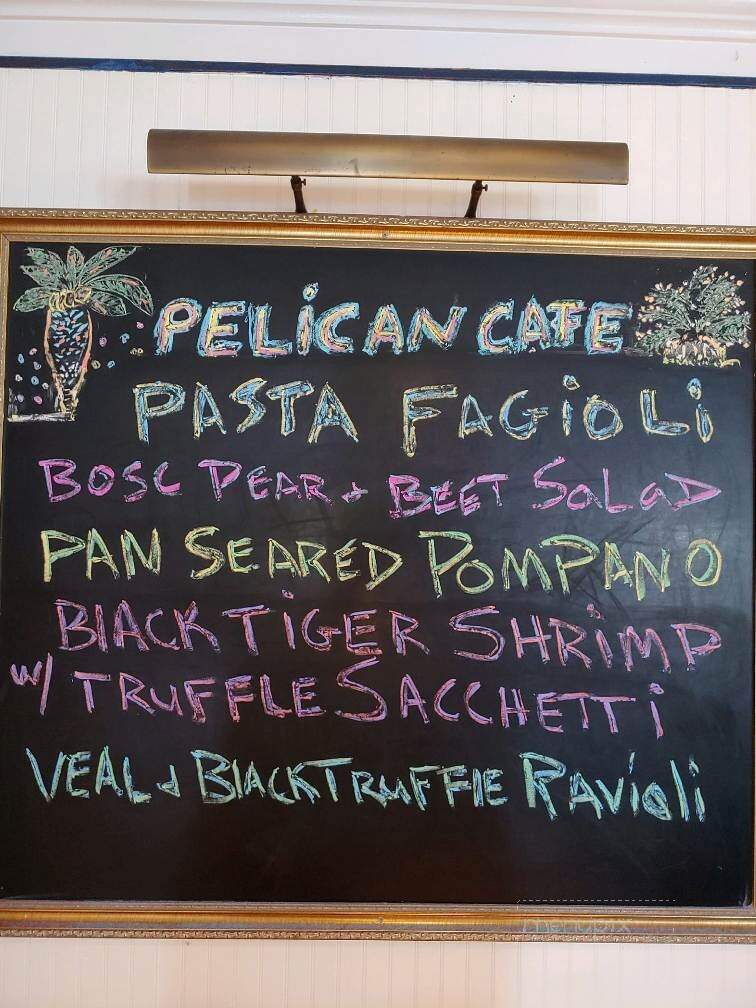 PELiCAN CAFE
PASTA FAGiOLi
BOSC PEAR + BEET SALAD
PAN SEARED POMPANO
BLACK TiGER SHRiMP
w/ TRUFFLE SACCHETTi
VEAL + BLACK TRUFFLE RAViOLi
menupix